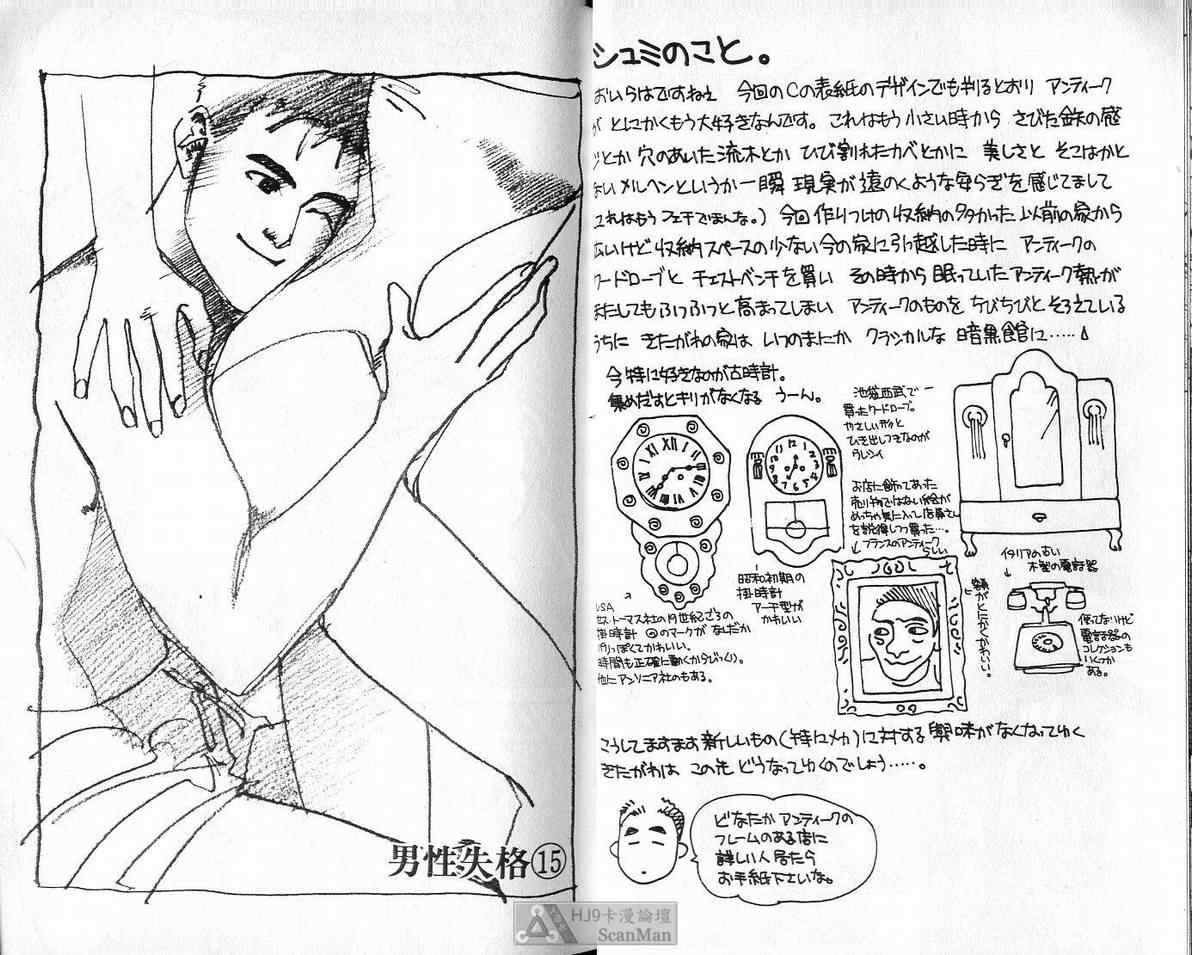 シュミのこと。
おいらはですねぇ 今回のCの表紙のデザインでも判るとおり アンティーク
が とにかくもう大好きなんです。これはもう小さい時から さびた鉄の感
じとか 穴のあいた流木とか ひび割れたカベとかに 美しさと そこはかと
ないメルヘンというか一瞬 現実が遠のくような安らぎを感じてまして
これはもうフェチでまんな。) 今回作りつけの収納の多かった以前の家から
広いけど収納スペースの少ない今の家に引っ越した時に アンティークの
ワードローブと チェストベンチを買い その時から眠っていたアンティーク熱が
またしてもふつふつと高まってしまい アンティークのものを ちびちびと そろえている
うちに きたがわの家は いつのまにか クラシカルな 暗黒館に……
今特に好きなのが古時計。
集めだすとキリがなくなる うーん。
池袋西武で
買ったワードローブ。
やさしい形と
ひき出しつきなのが
うれしい
お店に飾ってあった
売り物ではない絵が
めっちゃ気に入って店員さん
を説得しつつ買った…。
フランスのアンティーク
らしい
イタリアの古い
木製の電話器
額がとにかくかわいい。
使ってないけど
電話器の
コレクションも
いくつか
ある。
昭和初期の
掛時計
アーチ型が
かわいい
USA
セストーマス社の19世紀ごろの
掛時計 のマークが なんだか
っぽくてかわいい。
時間も正確に動くからびっくり。
他にアンソニア社のもある。
こうしてますます新しいもの(特にメカ)に対する興味がなくなってゆく
きたがわは この先 どうなってゆくのでしょう……。
どなたか アンティークの
フレームのある店に
詳しい人居たら
お手紙下さいな。
男性失格⑮
HJ9卡漫論壇
ScanMan